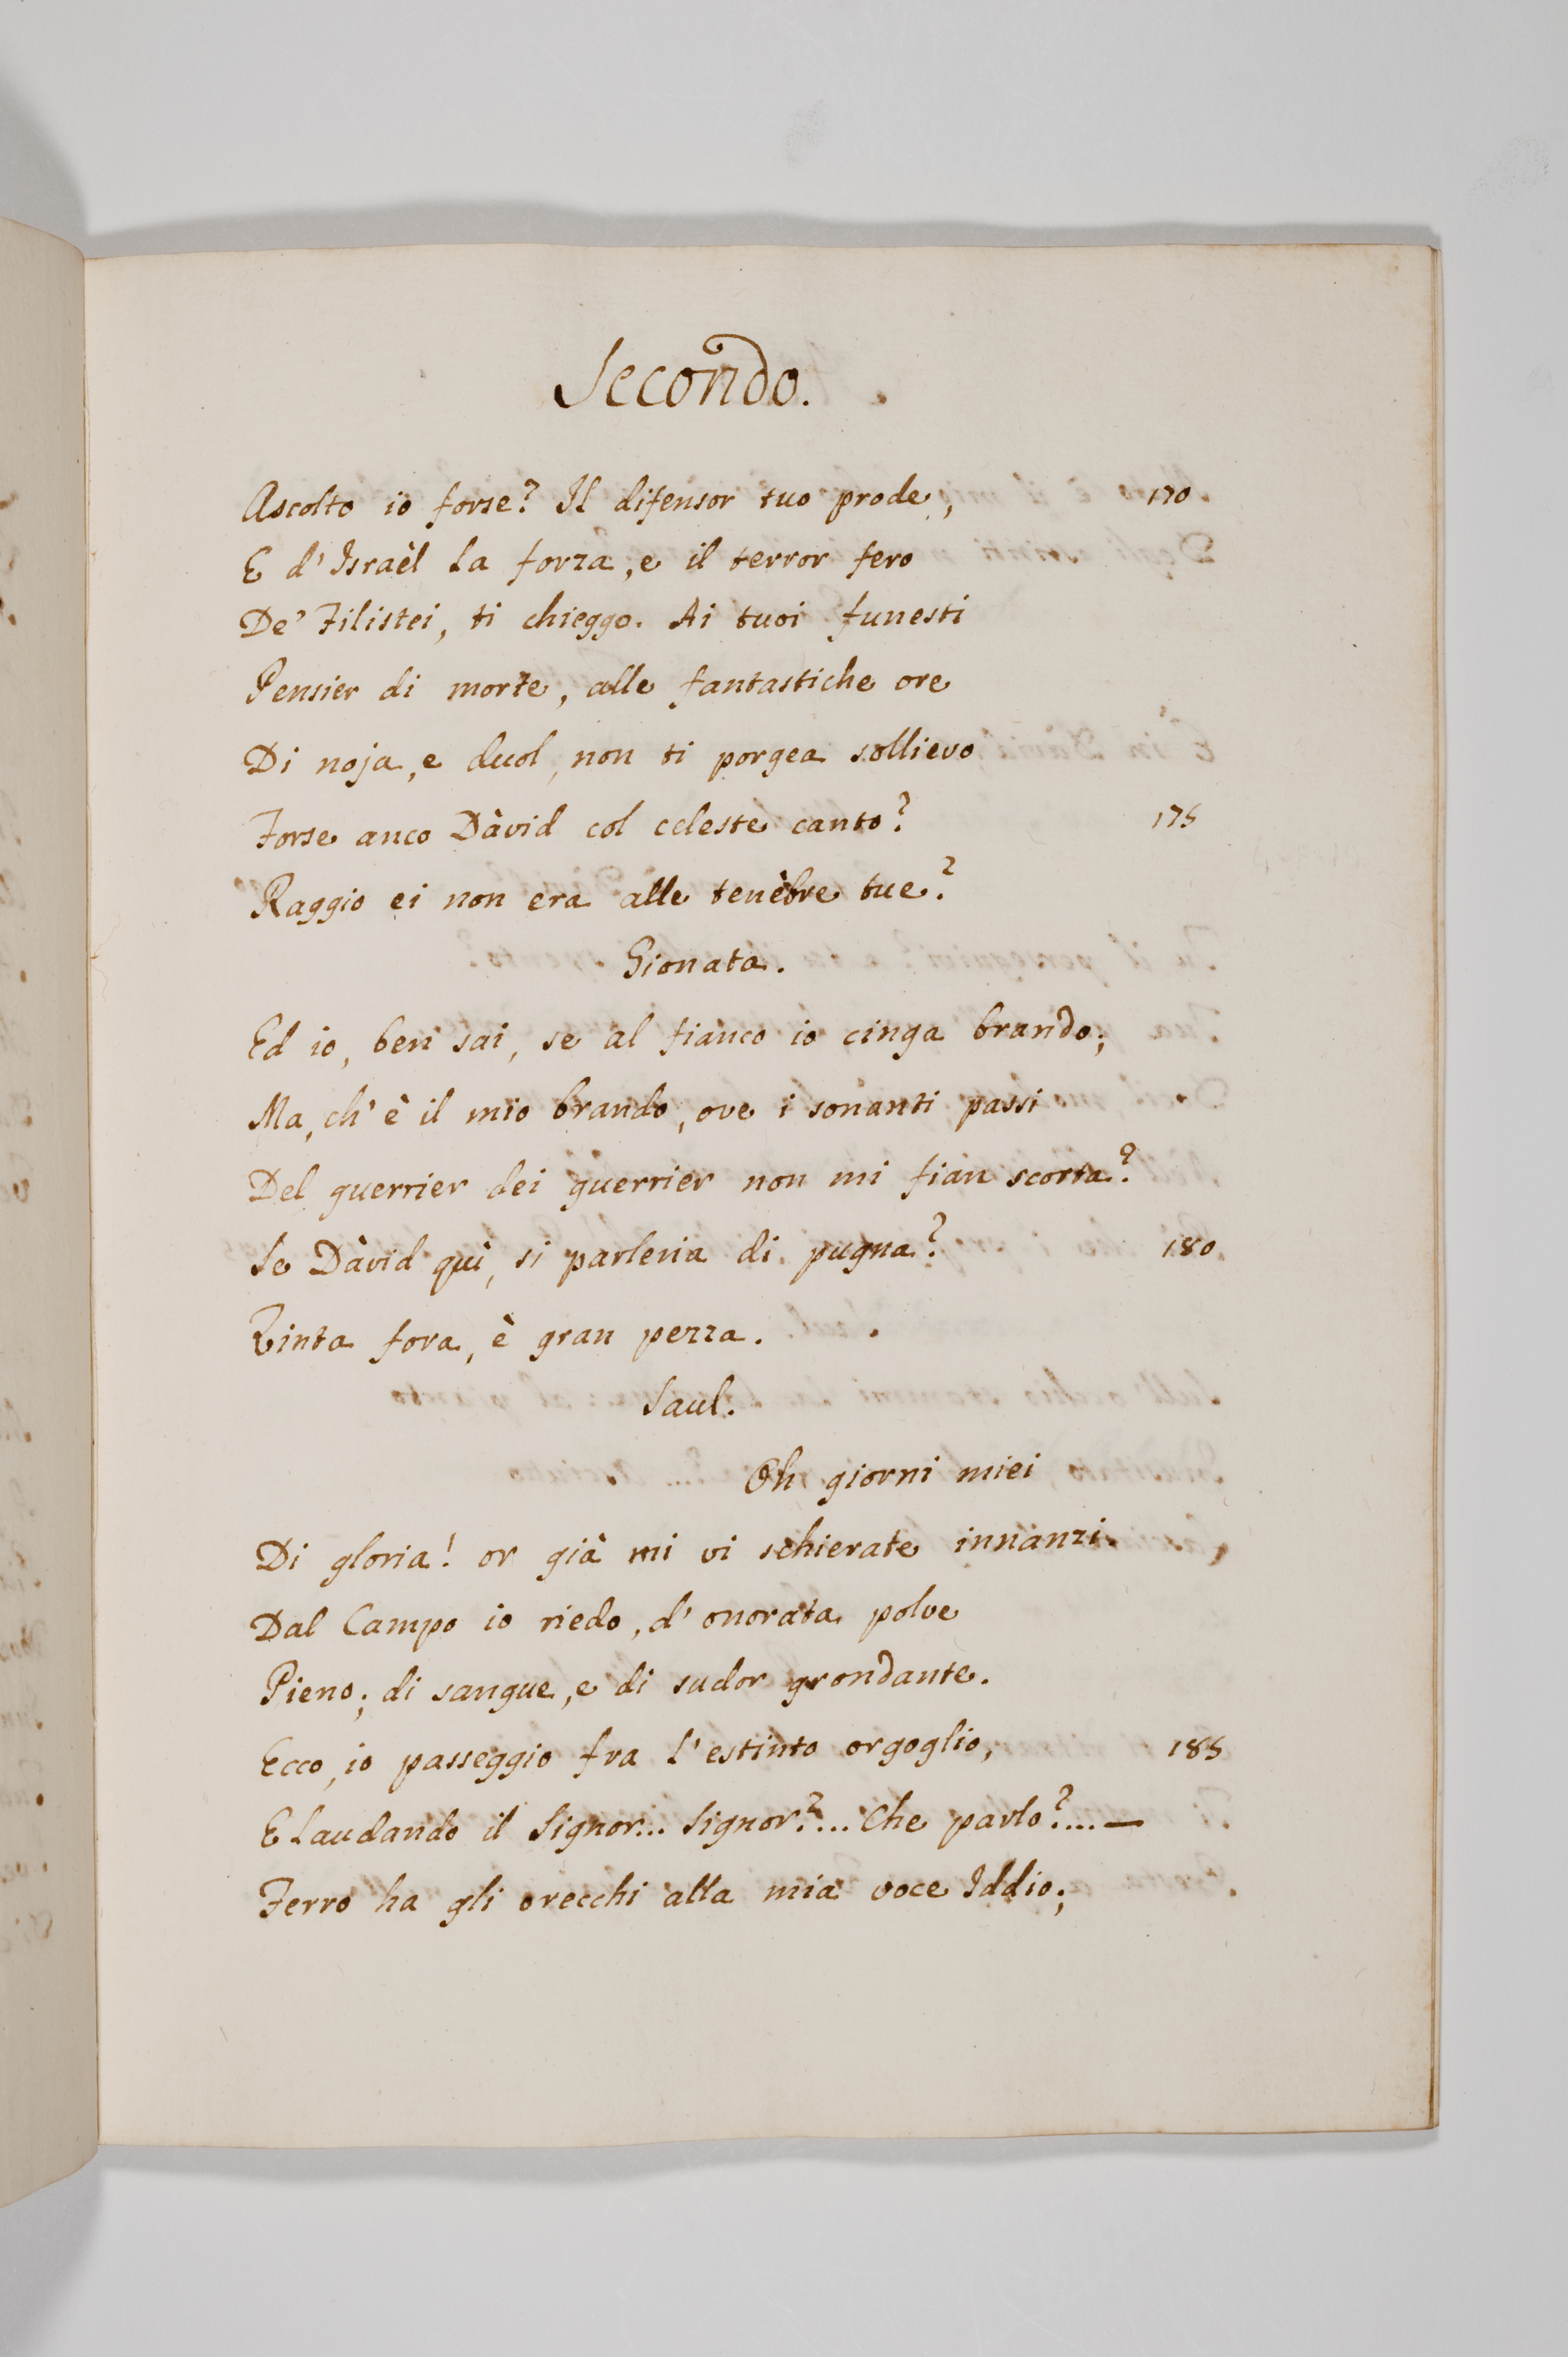 Secondo.
Ascolto io forse? Il difensor tuo prode, 170
E d'Israèl la forza, e il terror fero
De' Filistei, ti chieggo. Ai tuoi funesti
Pensier di morte, alle fantastiche ore
Di noja, e duol, non ti porgea sollievo
Forse anco Dàvid col celeste canto? 175
Raggio ei non era alle tenèbre tue?
Gionata.
Ed io, ben sai, se al fianco io cinga brando;
Ma, ch'è il mio brando, ove i sonanti passi
Del guerrier dei guerrier non mi fian scorta?
Se Dàvid quì, si parleria di pugna? 180
Vinta fora, è gran pezza.
Saul.
Oh giorni miei
Di gloria! or già mi vi schierate innanzi.
Dal Campo io riedo, d'onorata polve
Pieno; di sangue, e di sudor grondante.
Ecco, io passeggio fra l'estinto orgoglio, 185
E laudando il Signor... Signor?... Che parlo?.... —
Ferro ha gli orecchi alla mia voce Iddio;